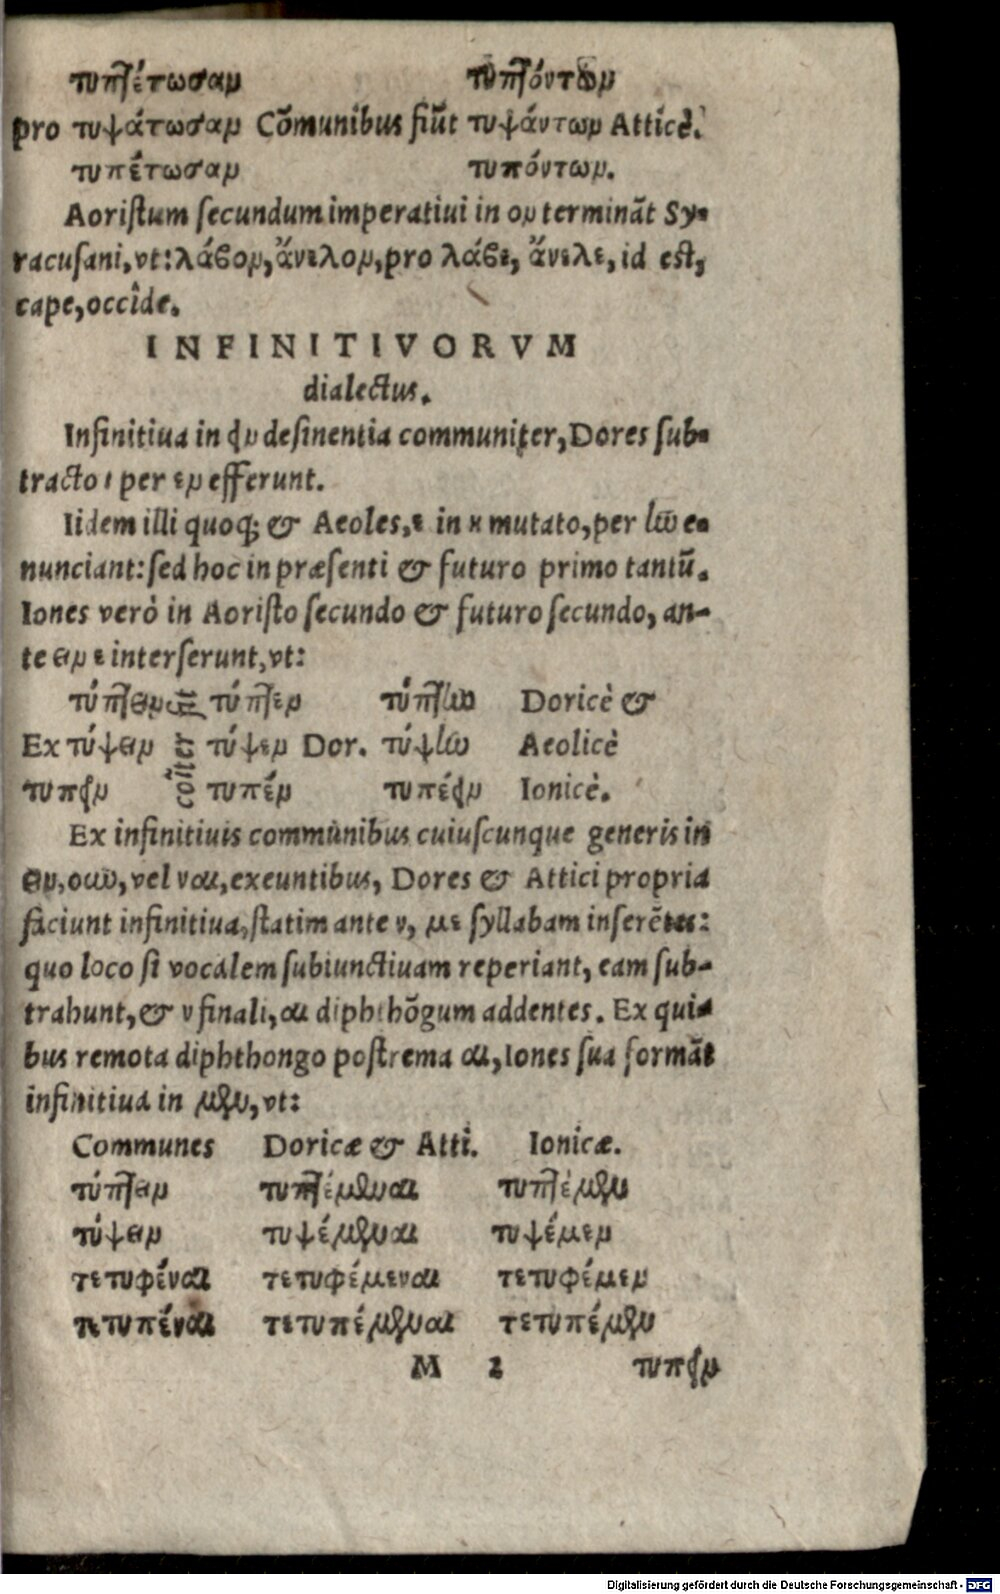 τυπτέτωσαν τυπτόντων
pro τυψάτωσαν Cõmunibus fiũt τυψάντων Atticè.
τυπέτωσαν τυπόντων.
Aoristum secundum imperatiui in ον terminãt Sy-
racusani, vt: λάβον, ἄνελον, pro λάβε, ἄνελε, id est,
cape, occîde.
INFINITIVORVM
dialectus.
Infinitiua in ειν desinentia communiter, Dores sub-
tracto ι per εν efferunt.
Iidem illi quoq; & Aeoles, ε in η mutato, per ην e-
nunciant: sed hoc in præsenti & futuro primo tantũ.
Iones verò in Aoristo secundo & futuro secundo, an-
te ειν ε interserunt, vt:
τύπτειν τύπτεν τύπτην Doricè &
Ex τύψειν cõiter fit τύψεν Dor. τύψην Aeolicè
τυπεῖν τυπέν τυπέειν Ionicè.
Ex infinitiuis communibus cuiuscunque generis in
ειν, οιων, vel ναι, exeuntibus, Dores & Attici propria
faciunt infinitiua, statim ante ν, με syllabam inserẽtes:
quo loco si vocalem subiunctiuam reperiant, eam sub-
trahunt, & ν finali, αι diphthõgum addentes. Ex qui-
bus remota diphthongo postrema αι, Iones sua formãt
infinitiua in μεν, vt:
Communes Doricæ & Atti. Ionicæ.
τύπτειν τυπτέμεναι τυπτέμεν
τύψειν τυψέμεναι τυψέμεν
τετυφέναι τετυφέμεναι τετυφέμεν
τετυπέναι τετυπέμεναι τετυπέμεν
M 2 τυπεῖν
Digitalisierung gefördert durch die Deutsche Forschungsgemeinschaft - DFG